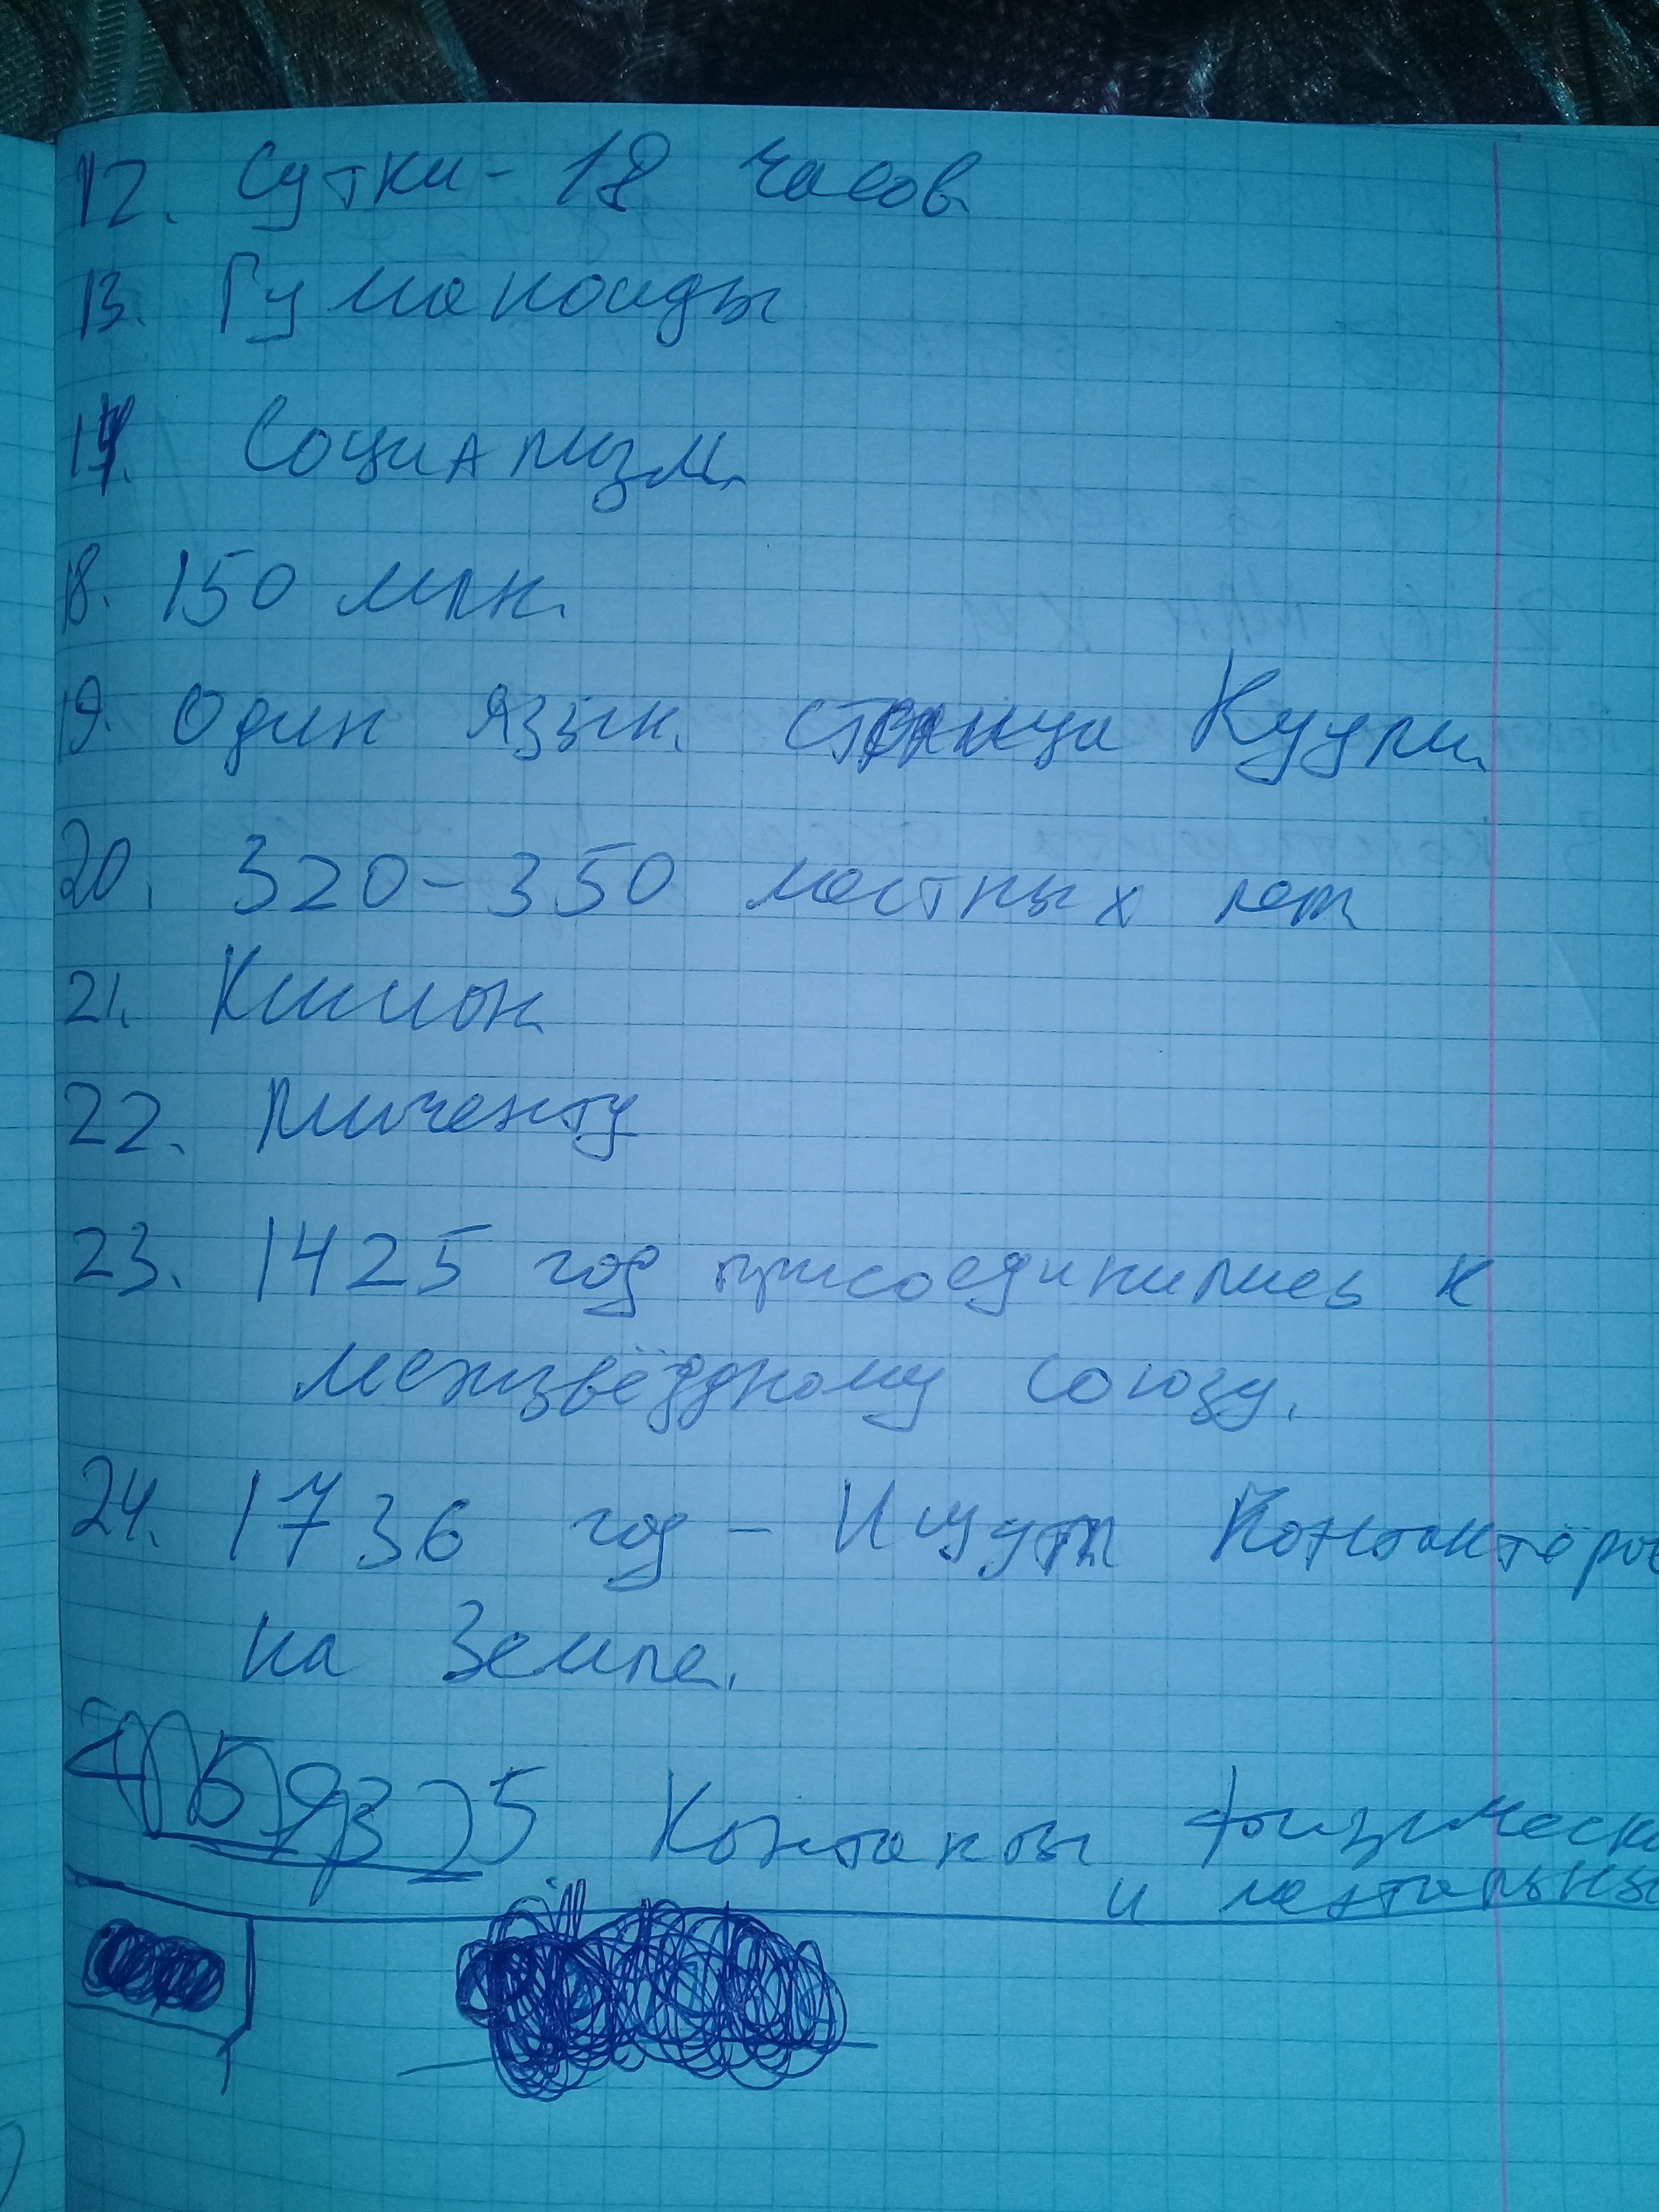 12. Сутки - 18 часов
13. Гуманоиды
14. Социализм
18. 150 млн.
19. Один язык. столица Куули
20. 320-350 местных лет
21.
22.
23. 1425 год присоединились к
межзвёздному союзу.
24. 1736 год - Ищут Контактёров
на Земле.
5 Контакты физически
и ментальны